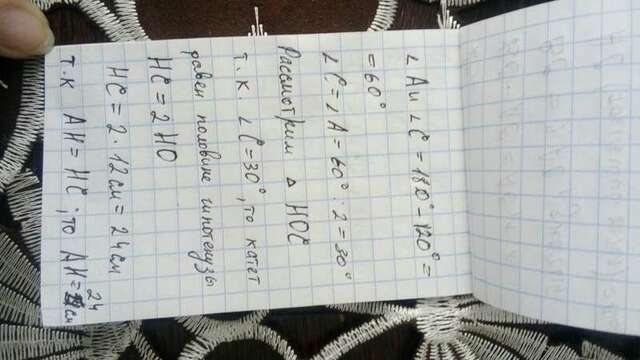 ∠A и ∠C = 180° - 120° =
= 60°
∠C = ∠A = 60° : 2 = 30°
Рассмотрим △ HOC
т.к. ∠C = 30°, то катет
равен половине гипотенузы
HC = 2 HO
HC = 2 · 12 см = 24 см
т.к AH = HC, то AH = 24 см